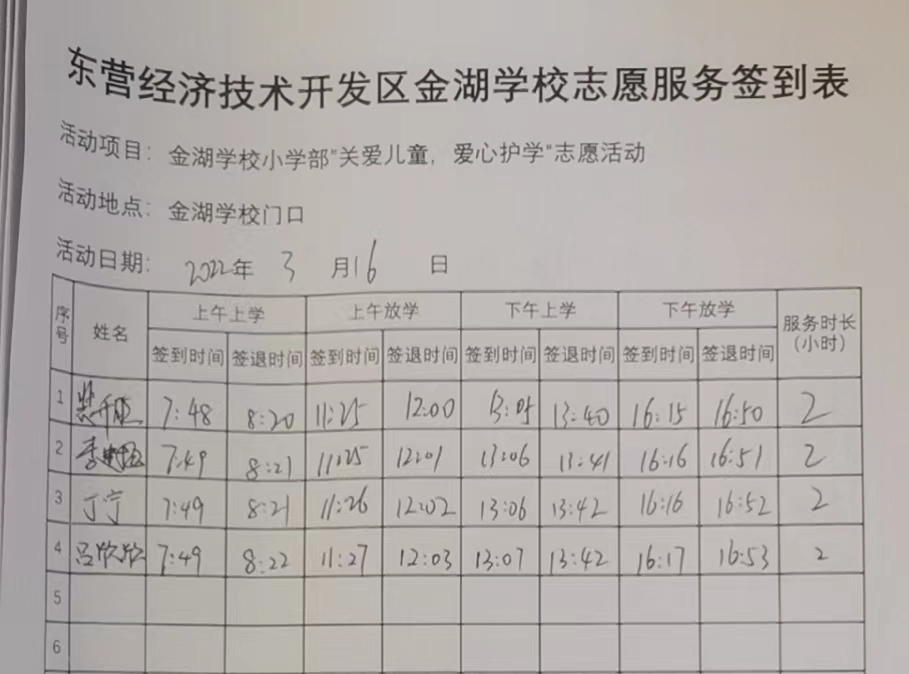 东营经济技术开发区金湖学校志愿服务签到表
活动项目：金湖学校小学部"关爱儿童，爱心护学"志愿活动
活动地点：金湖学校门口
活动日期：2022年 3 月16 日
序号 姓名 上午上学 上午放学 下午上学 下午放学 服务时长（小时）
签到时间 签退时间 签到时间 签退时间 签到时间 签退时间 签到时间 签退时间
1 7:48 8:20 11:25 12:00 13:05 13:40 16:15 16:50 2
2 李 7:49 8:21 11:25 12:01 13:06 13:41 16:16 16:51 2
3 丁宁 7:49 8:21 11:26 12:02 13:06 13:42 16:16 16:52 2
4 吕欣欣 7:49 8:22 11:27 12:03 13:07 13:42 16:17 16:53 2
5
6